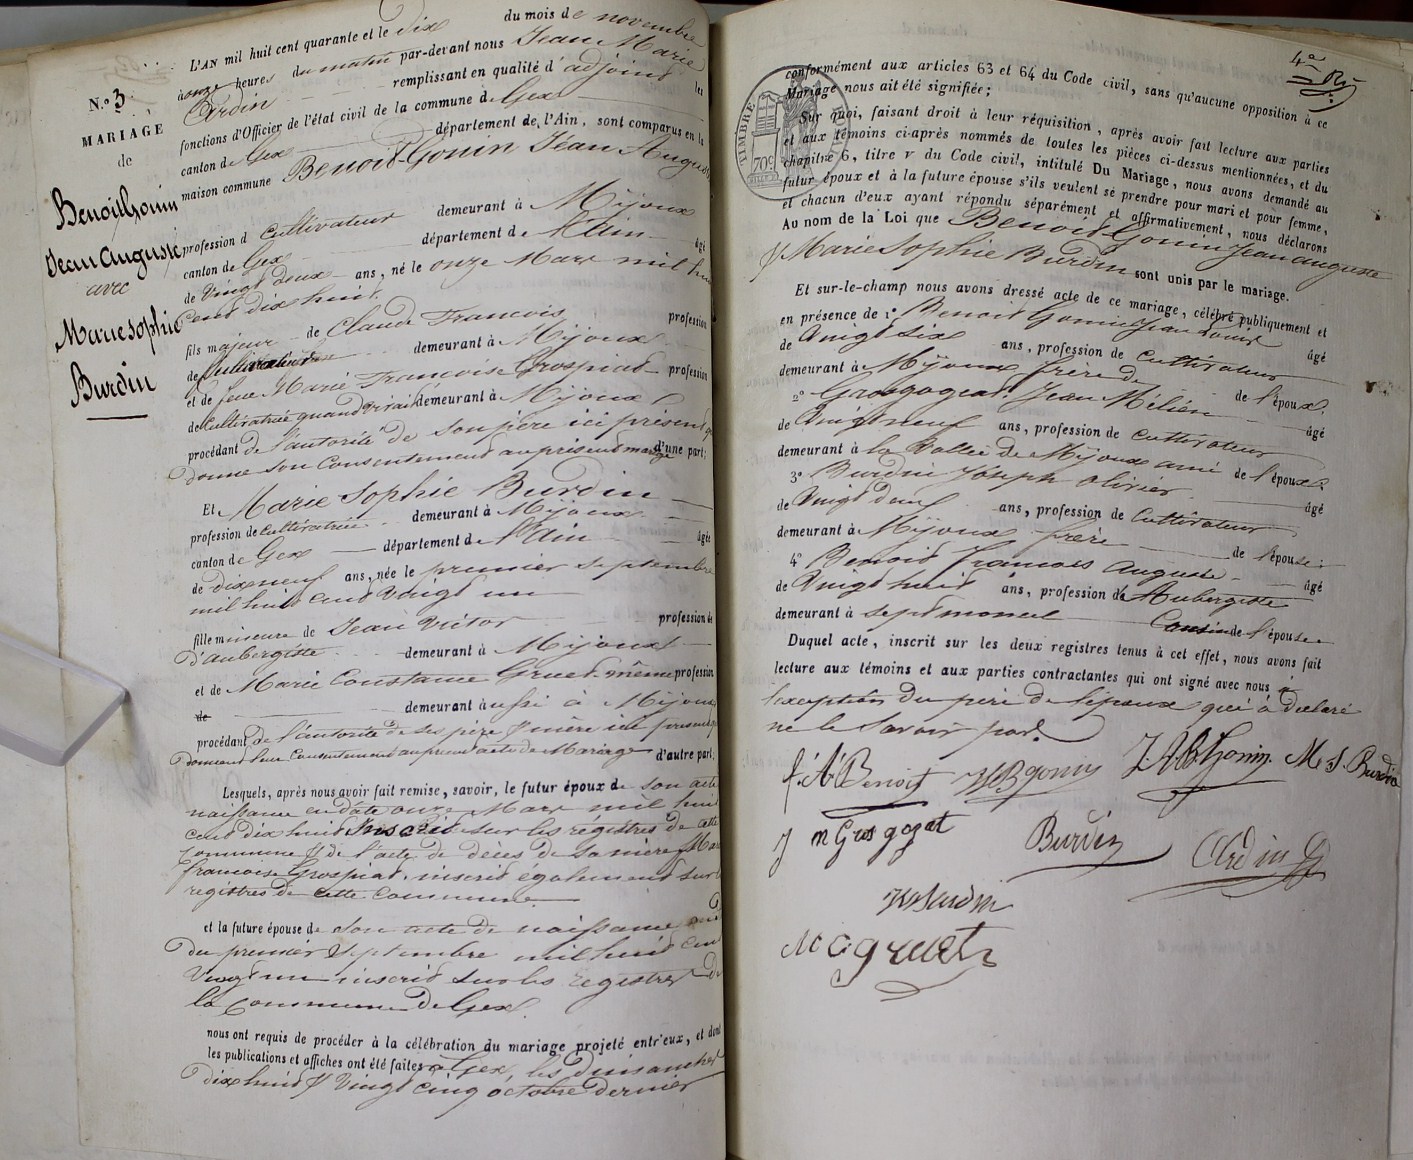 N.o 3
MARIAGE
de
Benoit Gonin
Jean Auguste
avec
Marie Sophie
Burdin
L'AN mil huit cent quarante et le dix du mois de novembre
à onze heures du matin par-devant nous Jean Marie
remplissant en qualité d'adjoint les
fonctions d'Officier de l'état civil de la commune de Gex
canton de Gex département de l'Ain, sont comparus en la
maison commune Benoit-Gonin Jean Auguste
profession d Cultivateur demeurant à Mijoux
canton de Gex département de l'Ain âgé
de Vingt deux ans, né le onze Mars mil huit
cent dix huit.
fils majeur de Claude Francois profession
de Cultivateur demeurant à Mijoux
et de feue Marie Francoise Grospiat profession
de Cultivatrice quand vivait demeurant à Mijoux
procédant de l'autorité de son père ici présent qui
donne son consentement au présent mariage d'une part;
Et Marie Sophie Burdin
profession de Cultivatrice demeurant à Mijoux
canton de Gex département de l'Ain âgée
de dix neuf ans, née le premier Septembre
mil huit cent vingt un
fille mineure de Jean Victor profession de
d'aubergiste demeurant à Mijoux
et de Marie Constance Gruet même profession
de demeurant aussi à Mijoux
procédant de l'autorité de ses père & mère ici présents qui
donnent leur consentement au présent acte de Mariage d'autre part;
Lesquels, après nous avoir fait remise, savoir, le futur époux de son acte
naissance en date onze Mars mil huit
cent dix huit Inscrit sur les régistres de cette
commune & de l'acte de décès de sa mère Marie
francoise Grospiat, inscrit également sur les
registres de cette commune.
et la future épouse de son acte de naissance
du premier Septembre mil huit cent
Vingt un inscrit sur les registres de
la commune de Gex.
nous ont requis de procéder à la célébration du mariage projeté entr'eux, et dont
les publications et affiches ont été faites à Gex, les dimanches
dix huit & Vingt cinq octobre dernier
4e
conformément aux articles 63 et 64 du Code civil, sans qu'aucune opposition à ce
Mariage nous ait été signifiée;
TIMBRE
70c
Sur quoi, faisant droit à leur réquisition, après avoir fait lecture aux parties
et aux témoins ci-après nommés de toutes les pièces ci-dessus mentionnées, et du
chapitre 6, titre v du Code civil, intitulé Du Mariage, nous avons demandé au
futur époux et à la future épouse s'ils veulent se prendre pour mari et pour femme,
et chacun d'eux ayant répondu séparément et affirmativement, nous déclarons
Au nom de la Loi que Benoit Gonin Jean auguste
& Marie Sophie Burdin sont unis par le mariage.
Et sur-le-champ nous avons dressé acte de ce mariage, célébré publiquement et
en présence de 1° Benoit Gonin Jean Louis âgé
de Vingt six ans, profession de Cultivateur
demeurant à Mijoux frère de de l'époux.
2° Grosgogeat Jean Mélien âgé
de Vingt neuf ans, profession de Cultivateur
demeurant à la Vallée de Mijoux ami de l'époux.
3° Burdin Joseph olivier âgé
de Vingt deux ans, profession de Cultivateur
demeurant à Mijoux frère de l'épouse.
4° Benoit Francois Auguste âgé
de Vingt huit ans, profession de Aubergiste
demeurant à Septmoncel Cousin de l'épouse.
Duquel acte, inscrit sur les deux registres tenus à cet effet, nous avons fait
lecture aux témoins et aux parties contractantes qui ont signé avec nous à
l'exception du père de l'époux qui a déclaré
ne le savoir pas.
f. A. Benoit J L B gonin J. A. B. Gonin. M. S. Burdin
J m Gros gogeat Burdin
Burdin
M C gruet